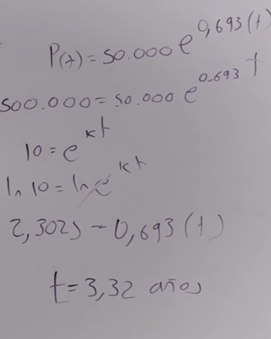 P(t) = 50.000 e^0,693(t)
500.000 = 50.000 e^0,693 t
10 = e^kt
ln 10 = ln e^kt
2,3025 = 0,693 (t)
t = 3,32 años